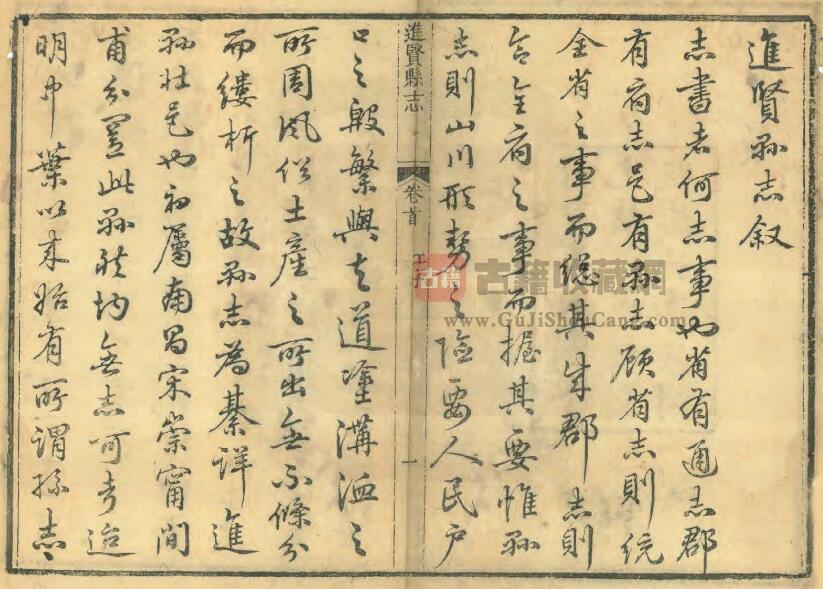 進賢縣志叙
志書者何志事也省有通志郡
有府志邑有縣志顧省志則統
全省之事而總其成郡志則
合全府之事而握其要惟縣
志則山川形勢之險要人民户
進賢縣志 卷首 一
口之殷繁與夫道塗溝洫之
所周風俗土產之所出無不條分
而縷析之故縣志為綦詳進
縣壯邑也初屬南昌宋崇甯間
甫分置此縣於均無志可考迨
明中葉以來始有所謂縣志
古籍 古籍收藏網
www.GuJiShouCang.com